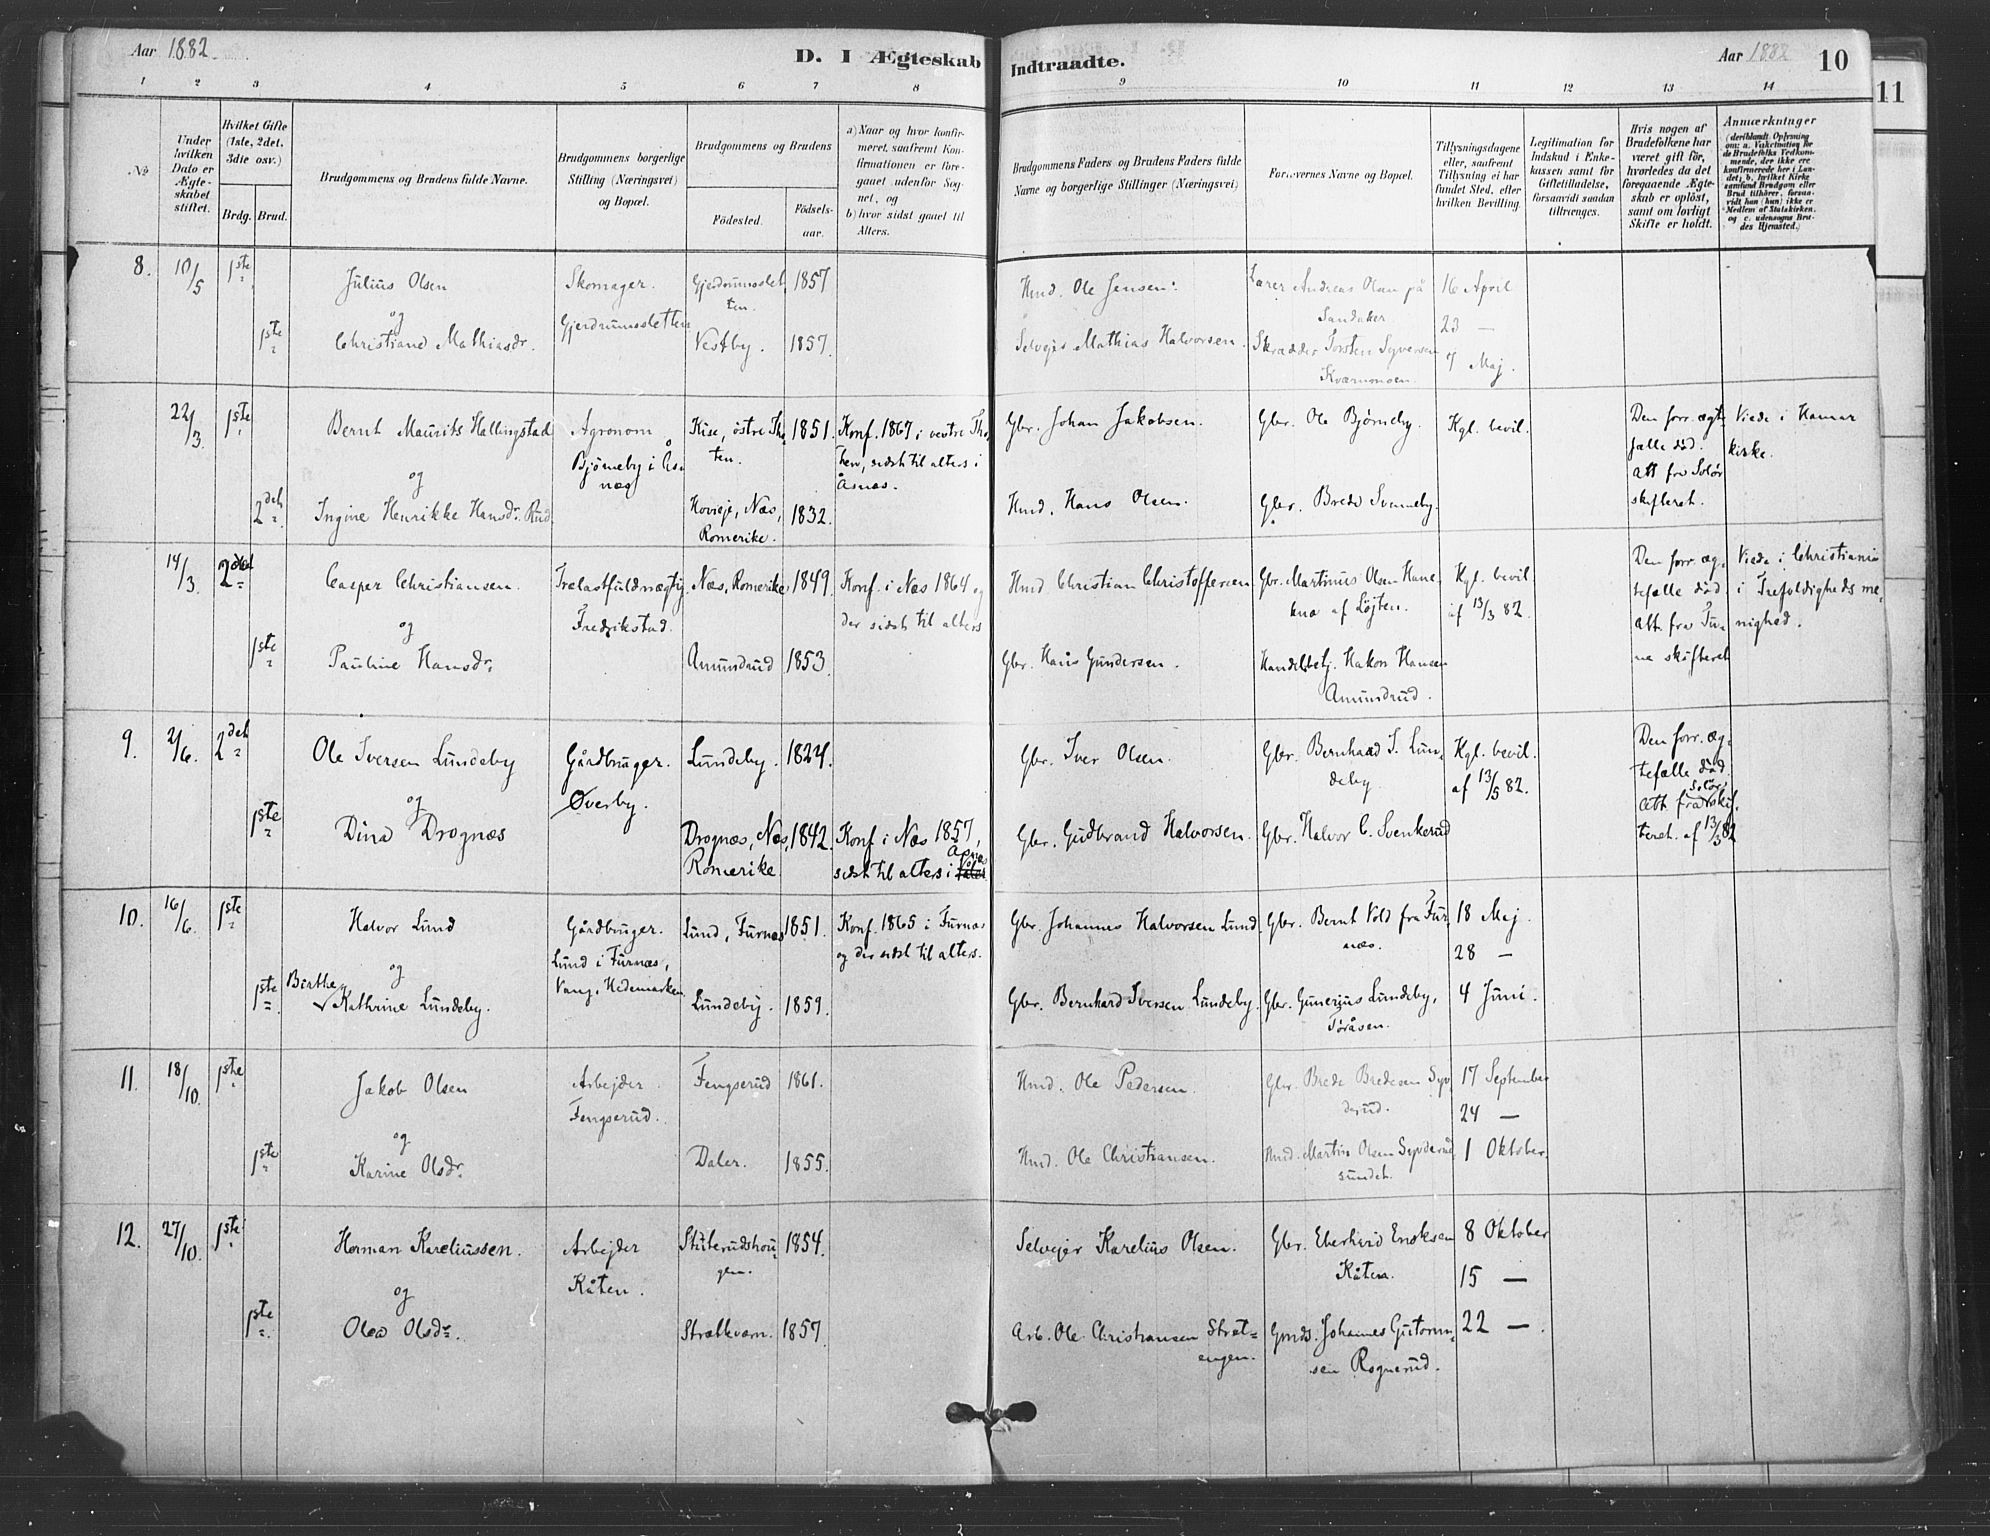 Aar 1882
D. I Ægteskab Indtraadte.
Aar 1882
10
11
1 2 3 4 5 6 7 8 9 10 11 12 13 14
No
Under hvilken Dato er Ægteskabet stiftet.
Hvilket Gifte (1ste, 2det, 3die osv.)
Brdg. Brud.
Brudgommens og Brudens fulde Navne.
Brudgommens borgerlige Stilling (Næringsvei) og Bopæl.
Brudgommens og Brudens
Fødested.
Fødsels-aar.
a) Naar og hvor konfirmeret, saafremt Konfirmationen er foregaaet udenfor Sognet, og
b) hvor sidst gaaet til Alters.
Brudgommens Faders og Brudens Faders fulde Navne og borgerlige Stillinger (Næringsvei)
Forlovernes Navne og Bopæl.
Tillysningsdagene eller, saafremt Tillysning ei har fundet Sted, efter hvilken Bevilling.
Legitimation for Indskud i Enkekassen samt for Giftetilladelse, forsaavidt saadan tiltrænges.
Hvis nogen af Brudefolkene har været gift før, hvorledes da det foregaaende Ægteskab er opløst, samt om lovligt Skifte er holdt.
Anmærkninger
(deriblandt Oplysning om: a. Vakcination for de Brudefolks Vedkommende, der ikke ere konfirmerede her i Landet; b. hvilket Kirkesamfund Brudgom eller Brud tilhører, forsaavidt han (hun) ikke er Medlem af Statskirken, og c. udensogns Brudes Hjemsted.)
8. 10/5 1ste Julius Olsen
og
1ste Christiane Mathiasdr.
Skomager.
Gjerdrumsletten
Gjerdrumsletten. 1857
Vestby. 1857.
Hmd. Ole Jensen.
Selvejer Mathias Halvorsen.
Lærer Andreas Olsen på
Sandaker
Skrædder Torsten Syversen
Kværnmoen.
16 April
23 —
7 Maj.
22/3 1ste Bernt Maurits Hallingstad
og
2det Ingine Henrikke Hansdr. Rud
Agronom
Bjørneby i Åsnæs
Kise, østre Thoten. 1851.
Hovieje, Næs, Romerike. 1832.
Konf. 1867 i vestre Thoten, sidst til alters i Åsnæs.
Gbr. Johan Jakobsen.
Hmd. Hans Olsen.
Gbr. Ole Bjørneby.
Gbr. Brede Svenneby.
Kgl. bevil.
Den forr. ægtefælle død.
Att. fra Solør skifteret.
Viede i Hamar kirke.
14/3. 2det Casper Christiansen.
og
1ste Pauline Hansdr.
Trælastfuldmægtig
Fredrikstad.
Næs, Romerike 1849.
Amundrud 1853.
Konf. i Næs 1864 og
der sidst til alters
Hmd. Christian Christoffersen
Gbr. Hans Gundersen.
Gbr. Martinus Olsen
af Løjten.
Handelsbetj. Hakon Hansen
Amundrud.
Kgl. bevil
af 13/3 82.
Den forr. ægtefælle død.
Att. fra skifteret
Viede i Christiania
i Trefoldigheds menighed.
9. 2/6. 2det Ole Iversen Lundeby
og
1ste Dina Drognæs
Gårdbruger.
Øverby.
Lundeby. 1824.
Drognæs, Næs, Romerike 1842.
Konf. i Næs 1857,
sidst til alters i Åsnæs
Gbr. Iver Olsen.
Gbr. Gudbrand Halvorsen.
Gbr. Bernhard I. Lundeby
Gbr. Halvor C. Svenkerud
Kgl. bevil.
af 13/5 82.
Den forr. ægtefælle død.
Att. fra Solør skifteret. af 13/3 82
10. 16/6. 1ste Halvor Lund
og
1ste Birthe Kathrine Lundeby.
Gårdbruger.
Lund i Furnæs,
Vang, Hedemarken
Lund, Furnæs 1851.
Lundeby. 1859.
Konf. 1865 i Furnæs
og der sidst til alters.
Gbr. Johannes Halvorsen Lund.
Gbr. Bernhard Iversen Lundeby.
Gbr. Bernt Vold fra Furnæs.
Gbr. Gunerius Lundeby,
Toråsen.
18 Maj.
28 —
4 Juni.
11. 18/10. 1ste Jakob Olsen
og
1ste Karine Olsdr.
Arbejder
Fengserud.
Fengserud 1861.
Daler. 1855.
Hmd. Ole Pedersen.
Hmd. Ole Christiansen.
Gbr. Brede Bredesen Syverud.
Hmd. Martin Olsen
17 September
24 —
1 Oktober.
12. 27/10. 1ste Herman Kareliussen.
og
1ste Olea Olsdr.
Arbejder
Kåten.
Stuterudshougen. 1854.
Strætkværn. 1857
Selvejer Karelius Olsen.
Arb. Ole Christiansen Strætengen.
Gbr. Eberhard Enoksen
Kåten.
Gmds. Johannes Gutormsen Rognerud.
8 Oktober
15 —
22 —.